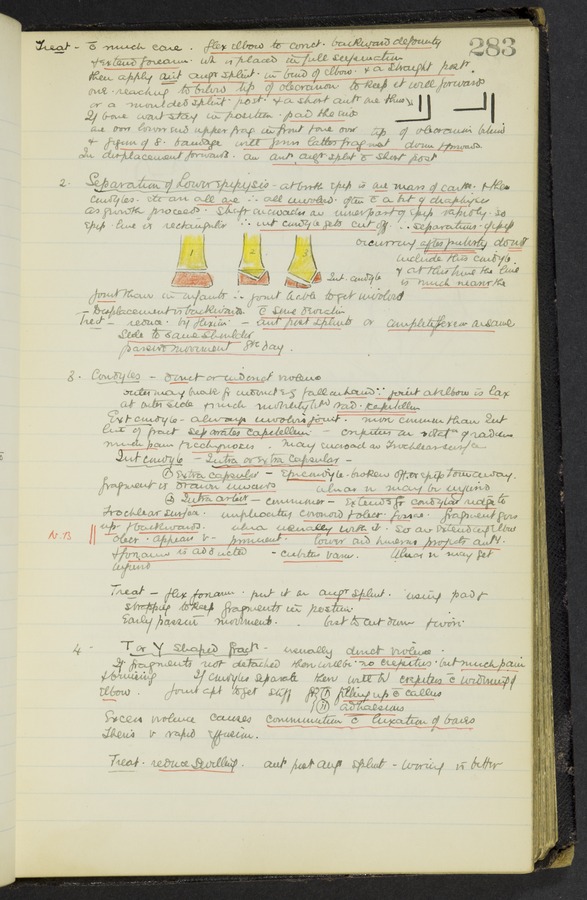 283
Treat - c̄ much care. flex elbow to correct backward deformity
& extend forearm. wh is placed in full supination
then apply ant angr splint. in bend of elbow. & a straight post.
one reaching to below tip of olecranon to keep it well forward
or a moulded splint post. & a short ant one thus
If bone wont stay in position. pad the end
one over lower end upper frag in front & one over tip of olecranon behind
& figure of 8 bandage will press latter fragment down & forwards
In displacement forwards. an ant. angr splint c̄ short post
2. Separation of Lower Epiphysis - at birth epip is one mass of cart. & the
condyles. etc are all one ∴ all involved. often c̄ a bit of diaphysis
as growth proceeds. Shaft encroaches on inner part of epip rapidly. so
epip. line is rectangular ∴ int condyle gets cut off. ∴ separation of epip
occurring after puberty dont
include this condyle.
& at this time the line
is much nearer the
1 2 3
Int. condyle
joint than in infants ∴ joint liable to get involved
- Displacement is backwards. c̄ some
Treat - reduce. by flexion - ant post splints or completely flex arm and
side to same shoulder
passive movement 8th day.
3. Condyles - direct or indirect violence
outer may break fr indirect eg fall on hand ∵ joint at elbow is lax
at outer side & much mobility btw rad. & capitellum
Ext condyle - always involves joint. more common than Int
line of fract separates capitellum - crepitus on rotatn of radius
much pain & ecchymosis - may encroach on trochlear surface
Int condyle - Intra or extra capsular -
① Extra capsular - Epicondyle. broken off, or epip torn away.
fragment is drawn inwards ulnar n may be injured
② Intra artic - commoner - Extends fr condylar ridge to
trochlear surface. implicates coronoid & olecr. fossae. fragment goes
up & backwards. ulna usually with it. So on extending elbow
N.B olecr. appears v- prominent. lower end humerus projects antly.
& forearm is adducted - cubitus varus. Ulnar n may get
injured
Treat - flex forearm. put it on angr splint. using pad &
strapping to keep fragments in position
Early passive movement. - best to cut down & wire
4 - T or Y shaped fract - usually direct violence.
If fragments not detached there will be no crepitus. but much pain
& bruising If condyles separate there will be crepitus c̄ widening of
elbow. Joint apt to get stiff fr (i) filling up c̄ callus
(ii) adhaesions
Excess violence causes comminution c̄ luxation of bones
There is v rapid effusion.
Treat. reduce swelling. ant post angr splint - wiring is better